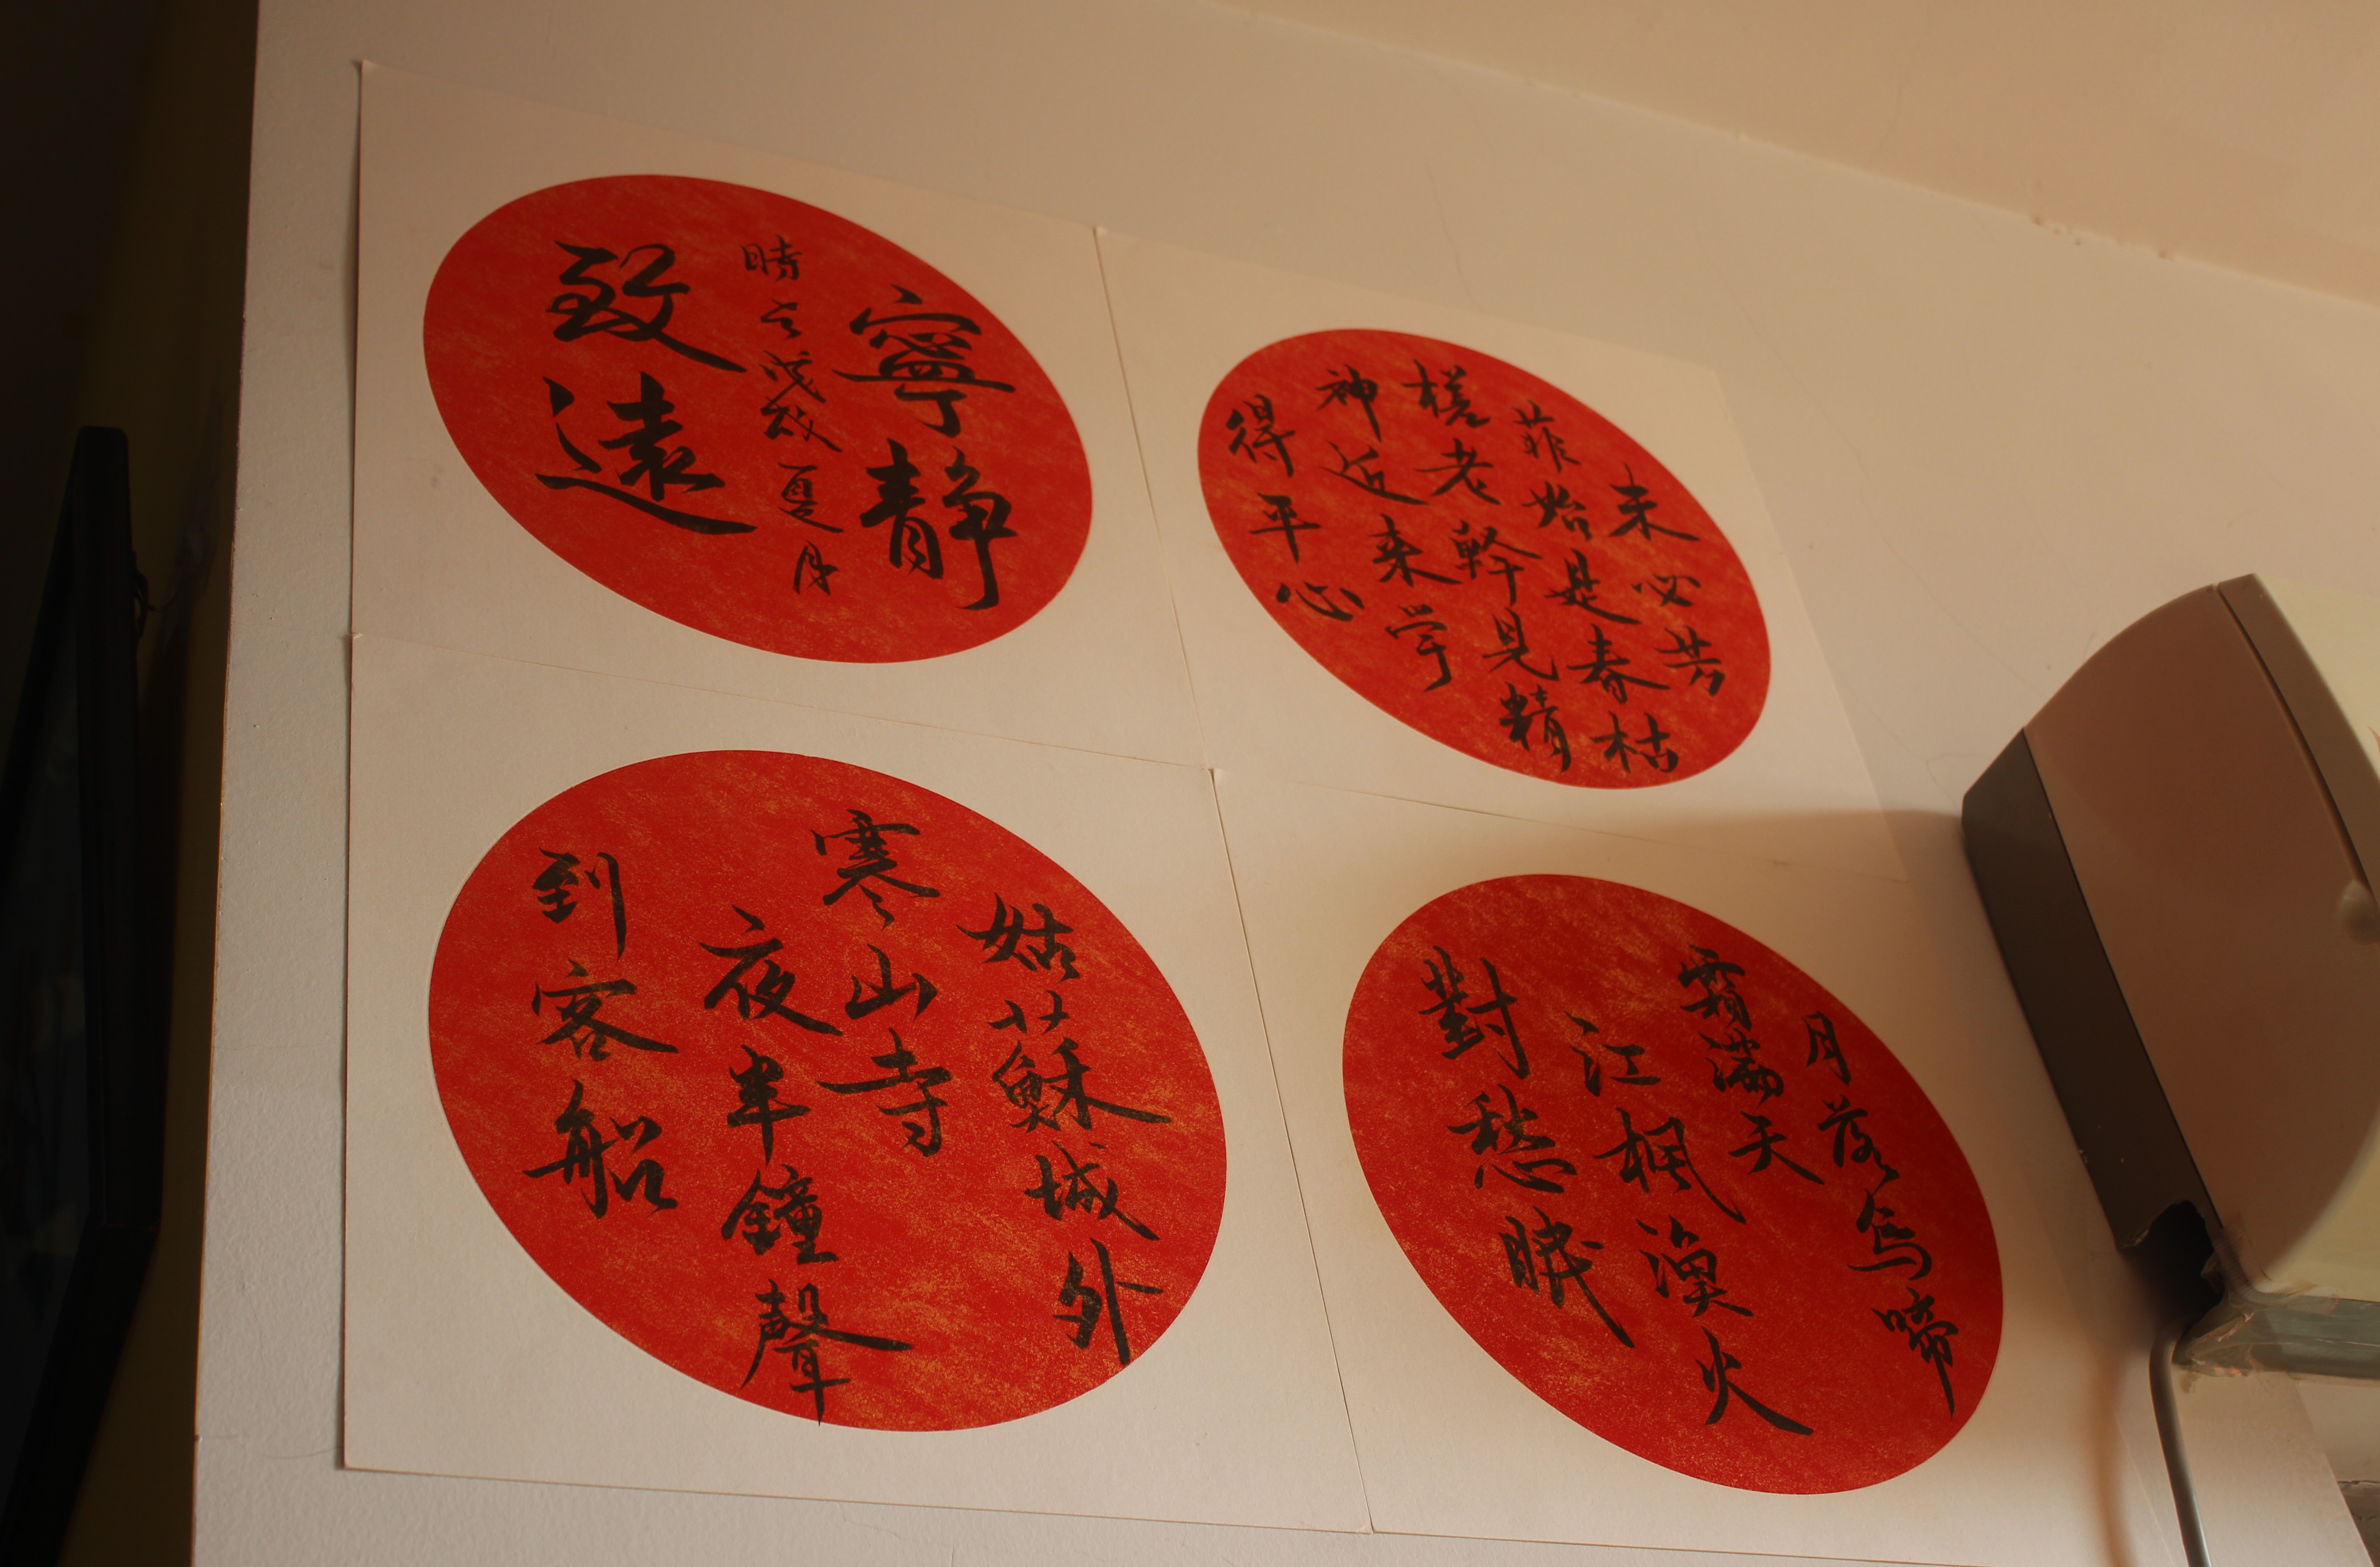 未必芳
菲始是春枯
槎老幹見精
神近来学
得平心
寧静
時夏月
致遠
月落烏啼
霜滿天
江楓漁火
對愁眠
姑蘇城外
寒山寺
夜半鐘聲
到客船